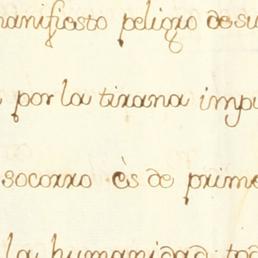 manifiesto peligro de su
por la tirana impu
socorro ès de prime
la humanidad tod